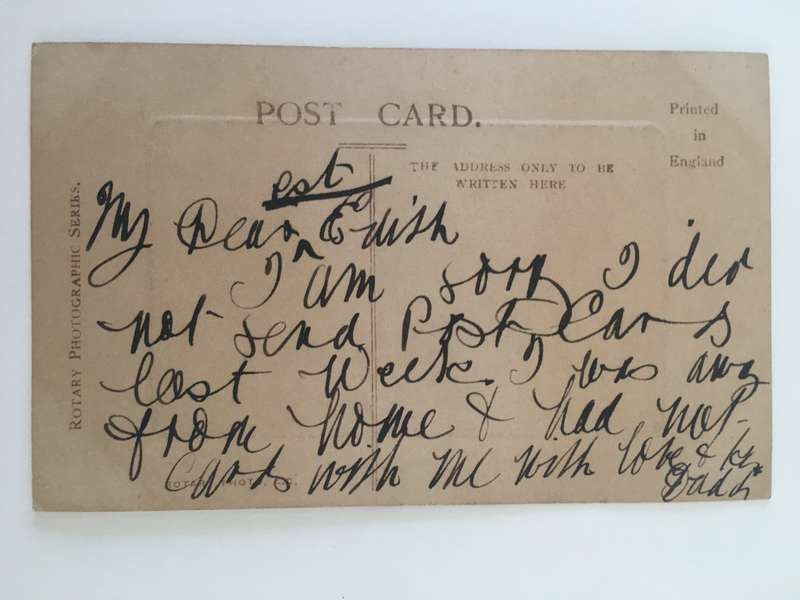 POST CARD.
Printed
in
England
THE ADDRESS ONLY TO BE
WRITTEN HERE
ROTARY PHOTOGRAPHIC SERIES.
est
My Dear ^ Edith
I am sorry I did
not send Post Cards
last Week. I was away
from home & had not
Cards with me with love &
Daddy
ROTARY PHOTO. E.C.